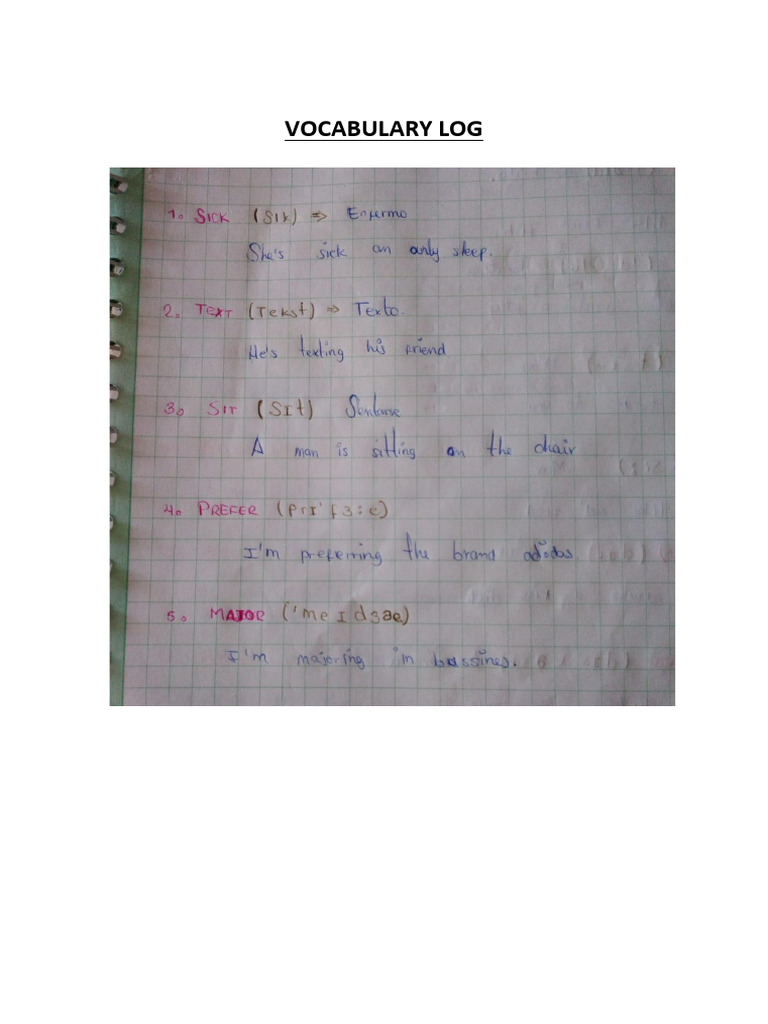 VOCABULARY LOG
1. SICK (SIK) => Enfermo
She's sick an only sleep.
2. TEXT (Tekst) => Texto.
He's texting his friend
3. SIT (SIt) Sentarse
A man is sitting on the chair
4. PREFER (prI'f3:e)
I'm preferring the brand adidas.
5. MAJOR ('meId3ə)
I'm majoring in bussines.